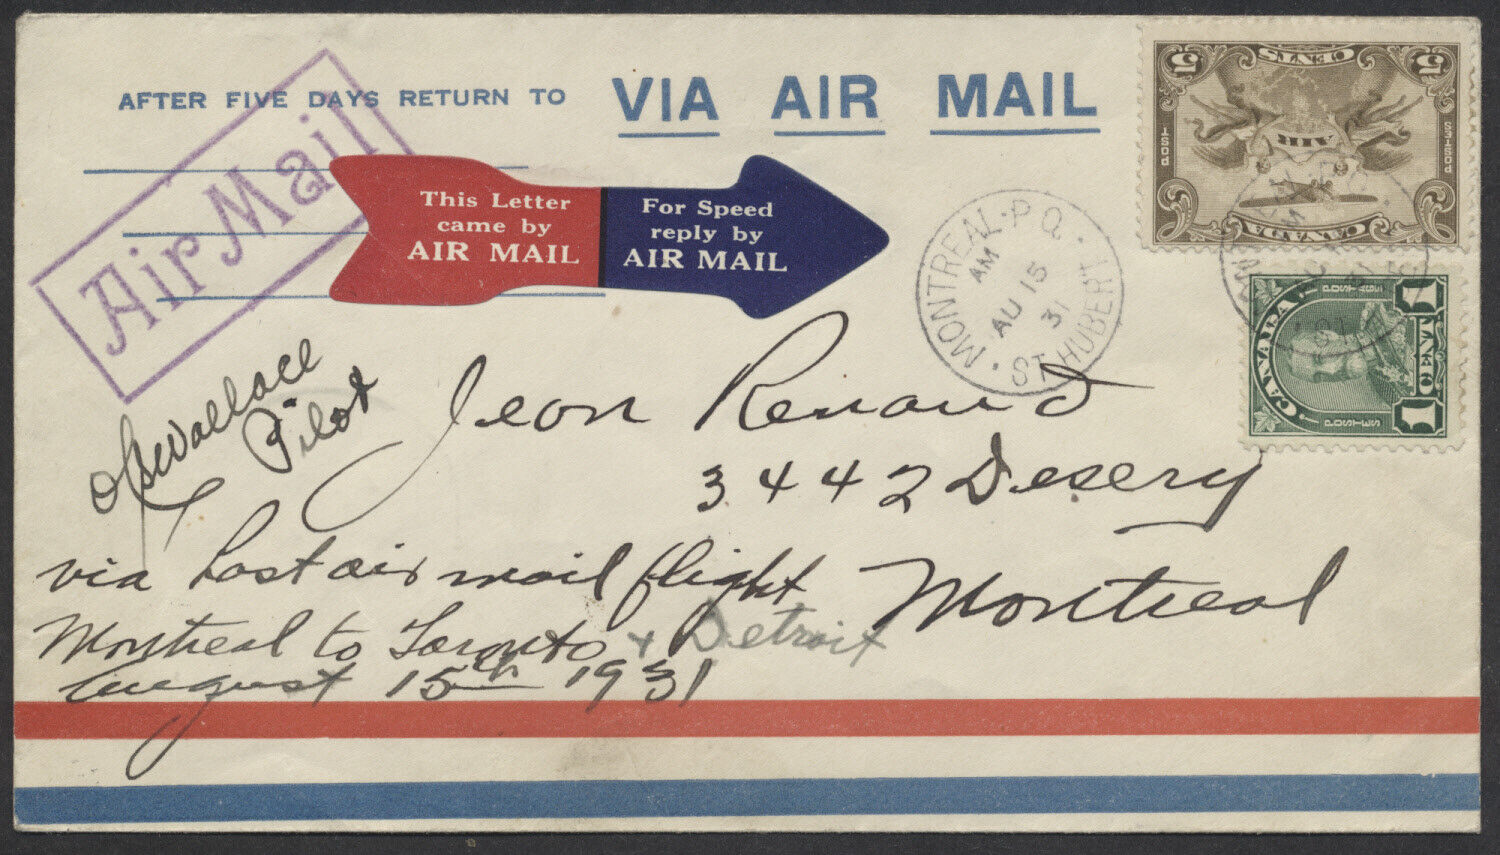 AFTER FIVE DAYS RETURN TO
VIA AIR MAIL
Air Mail
This Letter
came by
AIR MAIL
For Speed
reply by
AIR MAIL
MONTREAL · P.Q. · ST. HUBERT
AM
AU 15
31
5 CENTS 5
POST
POSTES
AIR
CANADA
CANADA
POSTAGE
POSTES
1 ONE 1
Wallace
Pilot
Jean Renaud
3442 Desery
Montreal
via Last air mail flight
Montreal to Toronto & Detroit
August 15th 1931